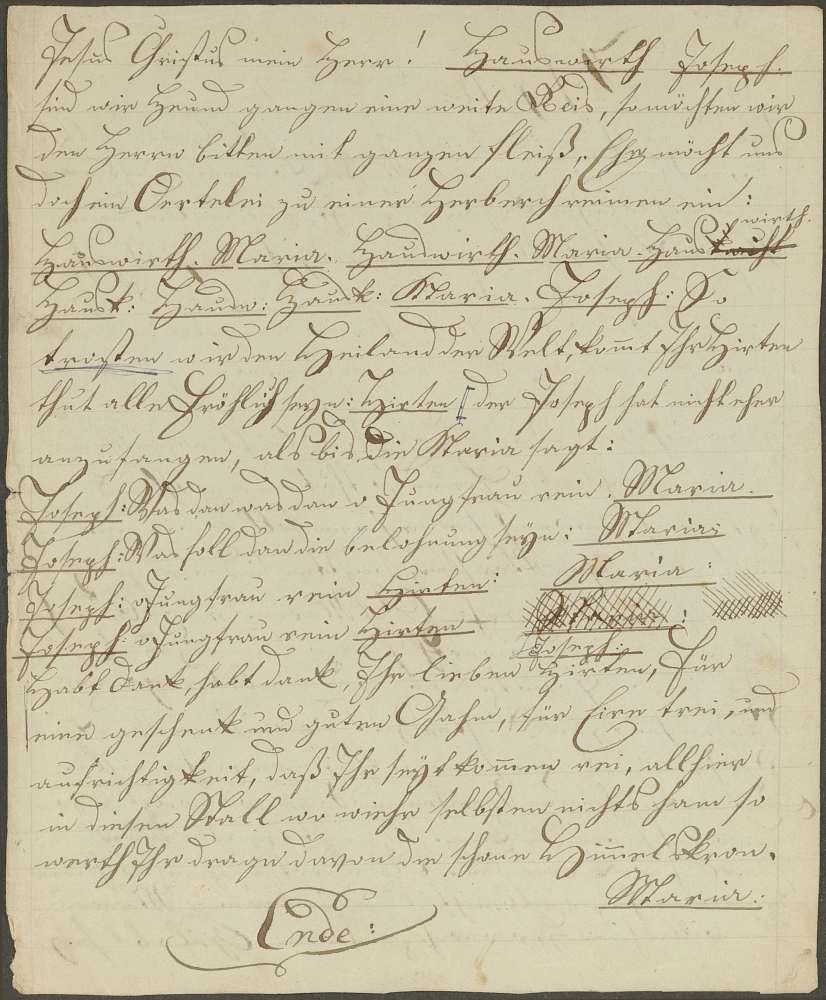 Jesus Christus mein Herr! Hauswirth Joseph.
sind wir Heund gangen eine weite Reis, so möchten wir
den Herrn bitten mit ganzen fleiß, Ehr möcht uns
doch ein Oertelei zu einer Herberch reimen ein:
Hauswirth. Maria. Hauswirth. Maria. Haus wirth.
Hausk: Hausw: Hausk: Maria. Joseph: So
trosten wir den Heiland der Welt, komt Ihr Hirten
thut alle Fröhlich seyn: Hirten der Joseph hat nicht eher
anzufangen, als bis die Maria sagt:
Joseph: Was dan was dan o Jungfrau rein. Maria.
Joseph: Was soll dan die belohnung seyn: Maria:
Joseph: o Jungfrau rein Hirten: Maria:
Joseph: o Jungfrau rein Hirten Maria:
Joseph:
Habt Dank, habt dank, Ihr lieben Hirten, Für
eine geschenk und guten Gahm, für Eire trei, und
aufrichtigkeit, daß Ihr seyt kommen rei, allhier
in diesen Stall wo wiehr selbsten nichts ham so
werth Ihr dragn davon die schöne Himelskron.
Maria:
Ende: